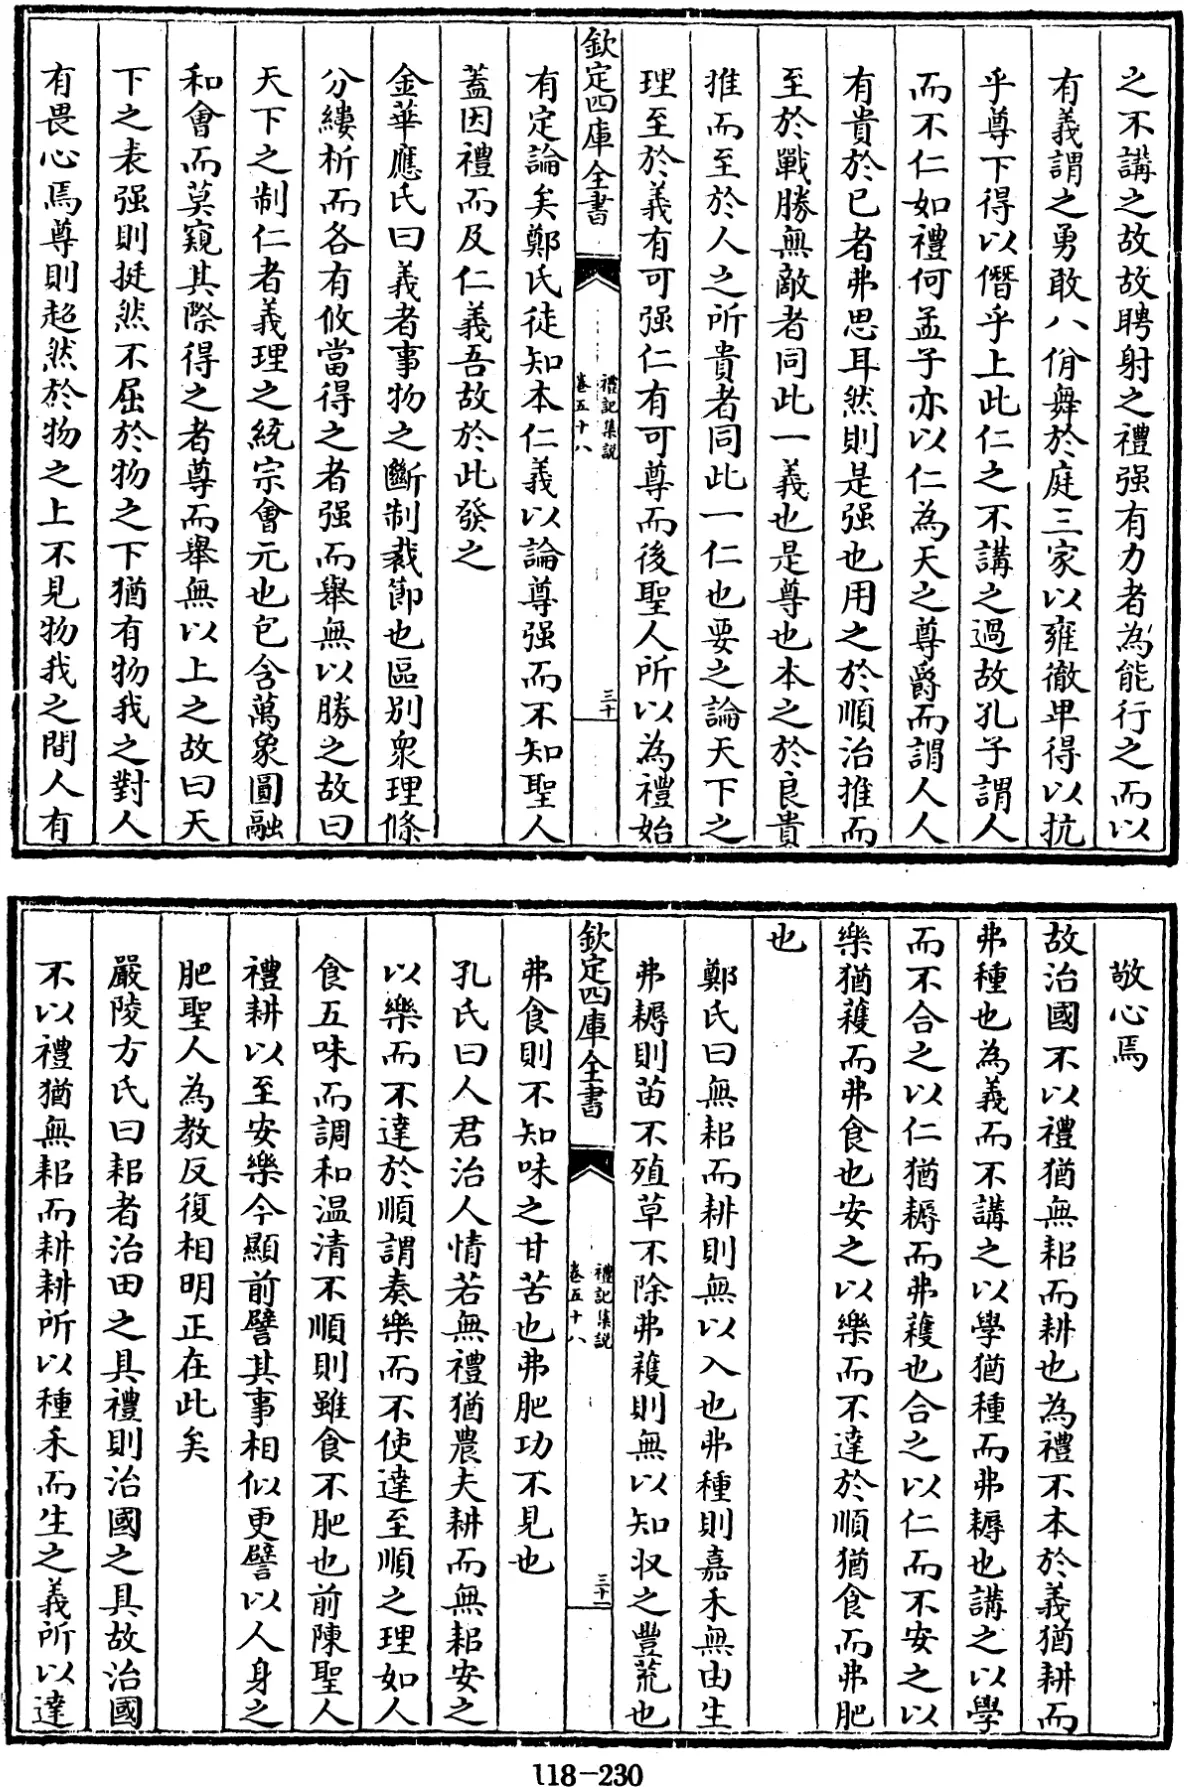 之不講之故故聘射之禮强有力者為能行之而以
有義謂之勇敢八佾舞於庭三家以雍徹卑得以抗
乎尊下得以僭乎上此仁之不講之過故孔子謂人
而不仁如禮何孟子亦以仁為天之尊爵而謂人人
有貴於已者弗思耳然則是强也用之於順治推而
至於戰勝無敵者同此一義也是尊也本之於良貴
推而至於人之所貴者同此一仁也要之論天下之
理至於義有可强仁有可尊而後聖人所以為禮始
欽定四庫全書
禮記集說
卷五十八
三十
有定論矣鄭氏徒知本仁義以論尊强而不知聖人
蓋因禮而及仁義吾故於此發之
金華應氏曰義者事物之斷制裁節也區别衆理條
分縷析而各有攸當得之者强而舉無以勝之故曰
天下之制仁者義理之統宗會元也包含萬象圓融
和會而莫窺其際得之者尊而舉無以上之故曰天
下之表强則挺然不屈於物之下猶有物我之對人
有畏心焉尊則超然於物之上不見物我之間人有
敬心焉
故治國不以禮猶無耜而耕也為禮不本於義猶耕而
弗種也為義而不講之以學猶種而弗耨也講之以學
而不合之以仁猶耨而弗穫也合之以仁而不安之以
樂猶穫而弗食也安之以樂而不達於順猶食而弗肥
也
鄭氏曰無耜而耕則無以入也弗種則嘉禾無由生
弗耨則苗不殖草不除弗穫則無以知收之豐荒也
欽定四庫全書
禮記集說
卷五十八
三十一
弗食則不知味之甘苦也弗肥功不見也
孔氏曰人君治人情若無禮猶農夫耕而無耜安之
以樂而不達於順謂奏樂而不使達至順之理如人
食五味而調和温清不順則雖食不肥也前陳聖人
禮耕以至安樂今顯前譬其事相似更譬以人身之
肥聖人為教反復相明正在此矣
嚴陵方氏曰耜者治田之具禮則治國之具故治國
不以禮猶無耜而耕耕所以種禾而生之義所以達
118-230